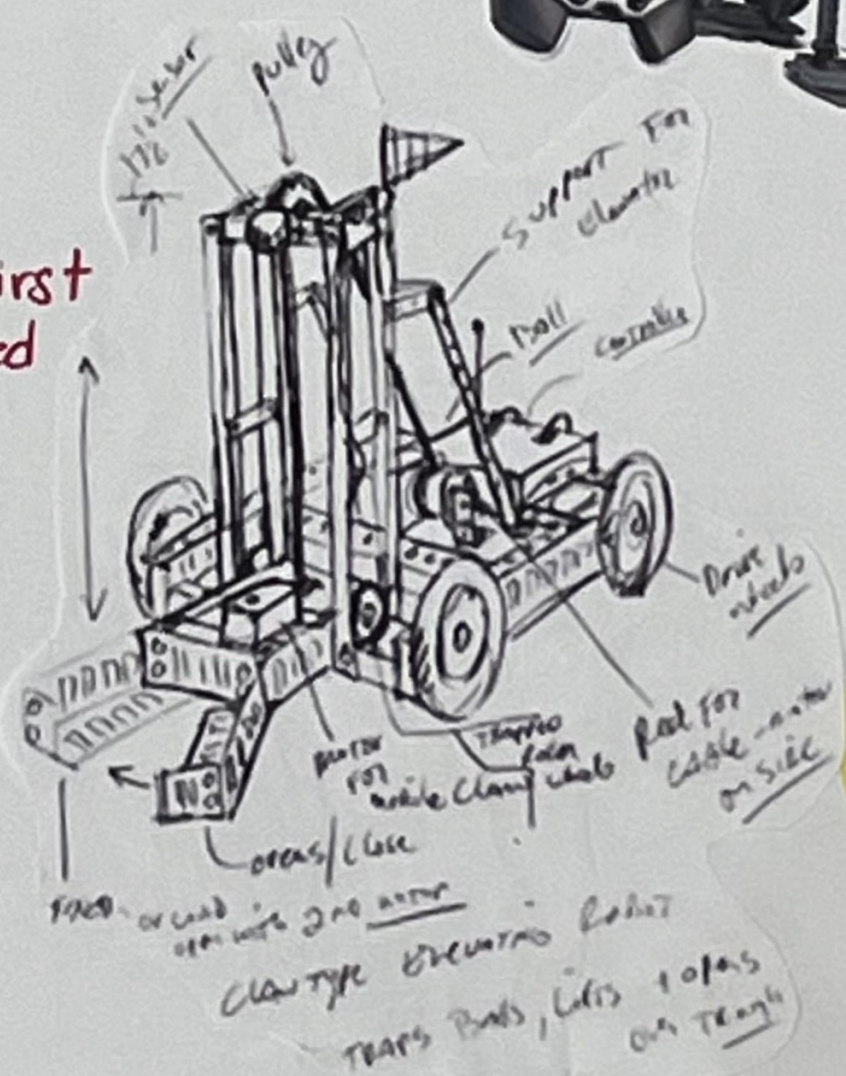 sensor
pulley
Support For
Elevator
irst
ed
Ball
controller
Drive
wheels
Reel For
cable - motor
on side
motor
For
mobile Claw
opens/close
Fixed - or could
open with 2nd motor
Claw Type Elevating Robot
Traps Balls, Lifts + opens
over Trough